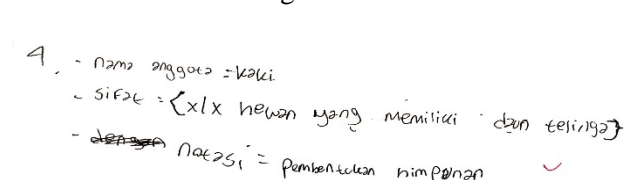 4. - nama anggota = kaki
- Sifat = {x|x hewan yang memiliki daun telinga}
- notasi = pembentukan himpunan